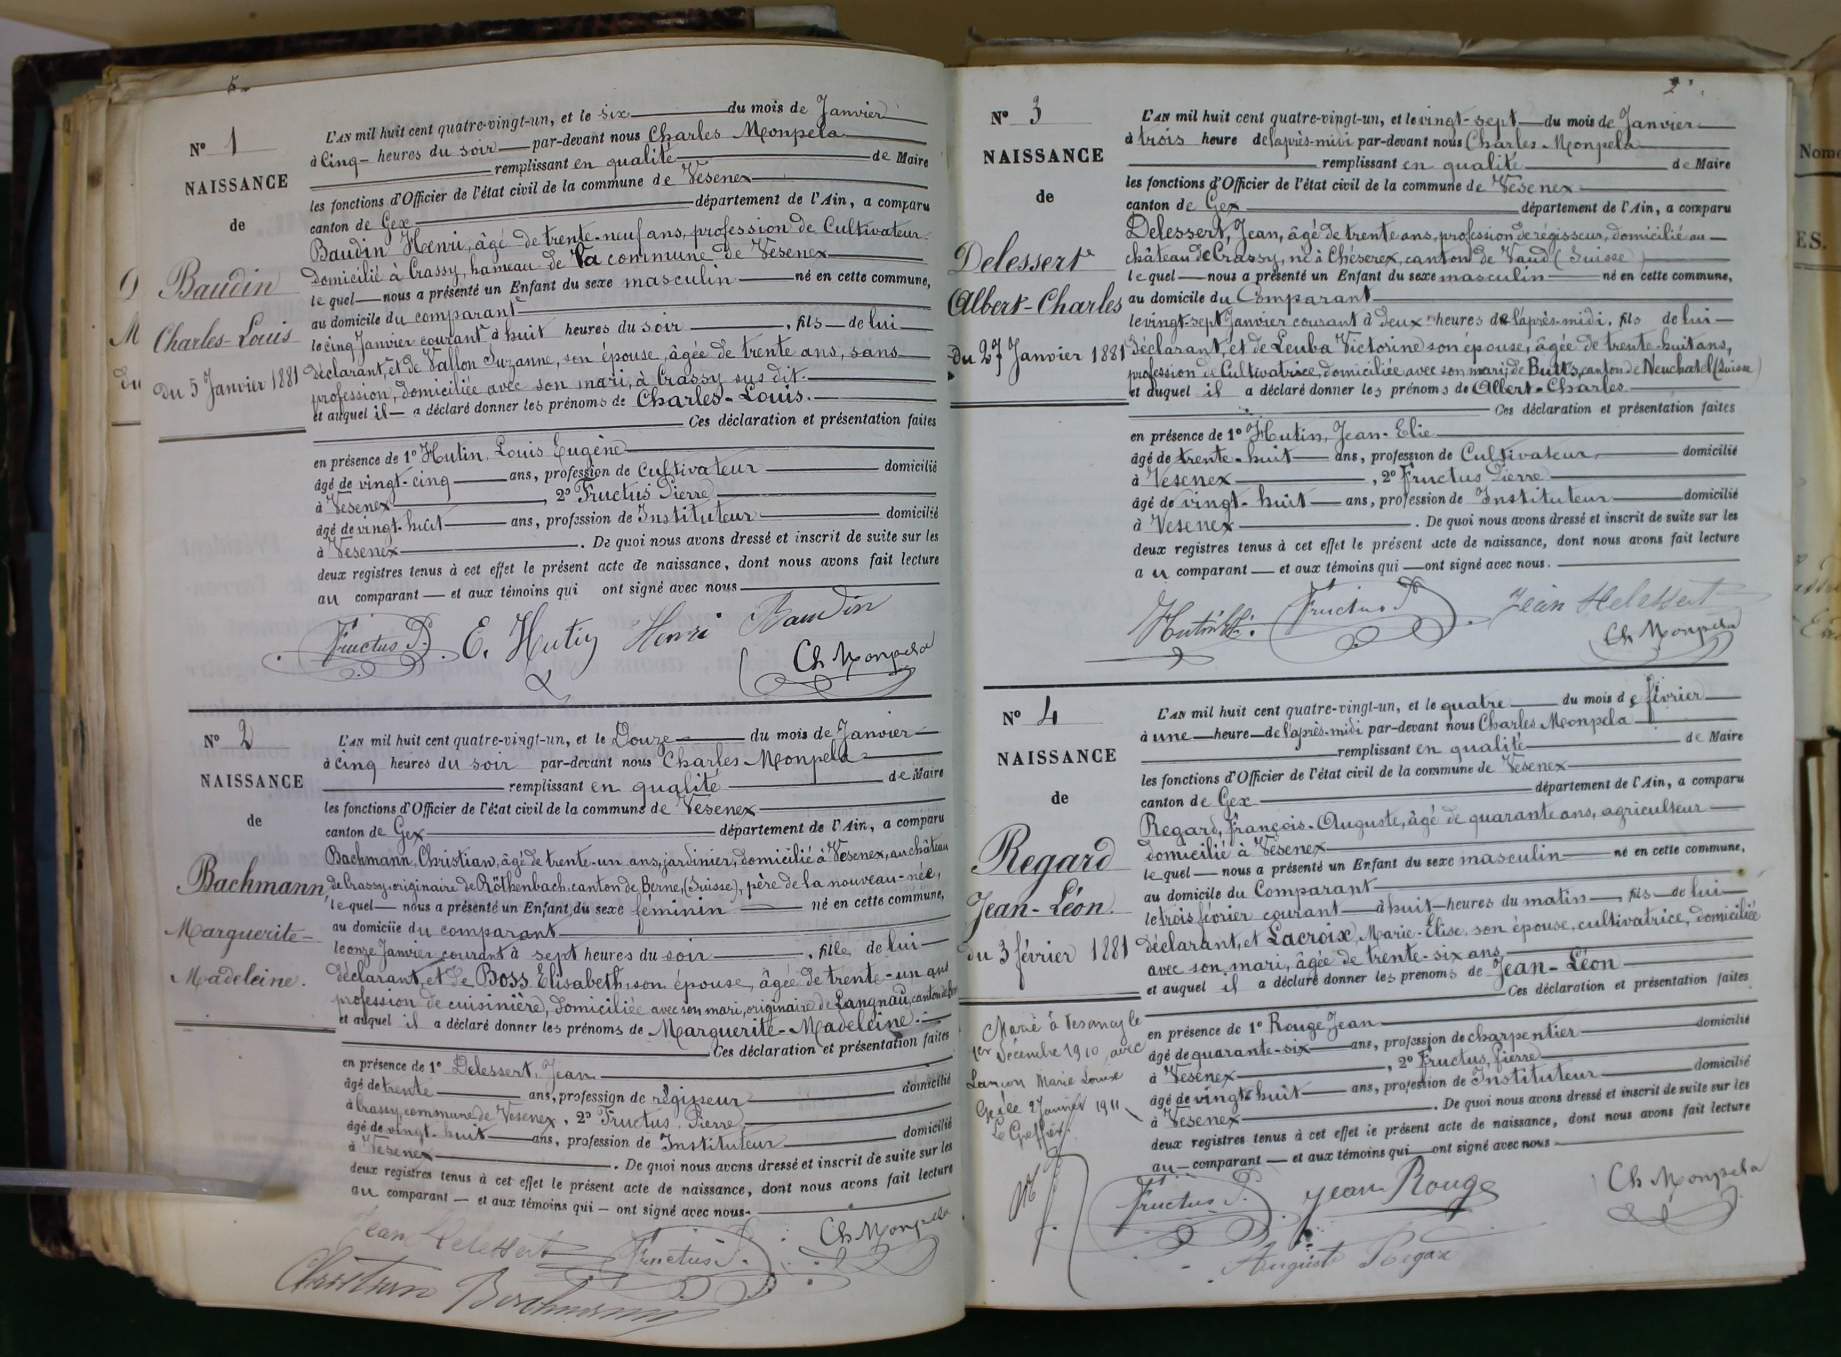 N° 1
NAISSANCE
de
Baudin
Charles-Louis
Du 5 Janvier 1881
L'AN mil huit cent quatre-vingt-un, et le six du mois de Janvier
à Cinq heures du soir par-devant nous Charles Monpela
remplissant en qualité de Maire
les fonctions d'Officier de l'état civil de la commune de Vesenex
canton de Gex département de l'Ain, a comparu
Baudin Henri, âgé de trente-neuf ans, profession de Cultivateur
domicilié à Crassy, hameau de la commune de Vesenex
le quel nous a présenté un Enfant du sexe masculin né en cette commune,
au domicile du comparant
le cinq Janvier courant à huit heures du soir, fils de lui
déclarant, et de Vallon Suzanne, son épouse, âgée de trente ans, sans
profession, domiciliée avec son mari, à Crassy sus dit.
et auquel il a déclaré donner les prénoms de Charles-Louis.
Ces déclaration et présentation faites
en présence de 1° Hutin, Louis Eugène
âgé de vingt-cinq ans, profession de Cultivateur domicilié
à Vesenex, 2° Fructus Pierre
âgé de vingt-huit ans, profession de Instituteur domicilié
à Vesenex. De quoi nous avons dressé et inscrit de suite sur les
deux registres tenus à cet effet le présent acte de naissance, dont nous avons fait lecture
au comparant et aux témoins qui ont signé avec nous
Fructus P. E. Hutin Henri Baudin
Ch Monpela
N° 2
NAISSANCE
de
Bachmann
Marguerite-
Madeleine.
L'AN mil huit cent quatre-vingt-un, et le Douze du mois de Janvier
à cinq heures du soir par-devant nous Charles Monpela
remplissant en qualité de Maire
les fonctions d'Officier de l'état civil de la commune de Vesenex
canton de Gex département de l'Ain, a comparu
Bachmann, Christian, âgé de trente-un ans, jardinier, domicilié à Vesenex, au château
de Crassy, originaire de Röthenbach, canton de Berne, (Suisse), père de la nouveau-née,
le quel nous a présenté un Enfant du sexe féminin né en cette commune,
au domicile du comparant
le onze Janvier courant à sept heures du soir, fille de lui
déclarant, et de Boss Elisabeth, son épouse, âgée de trente-un ans
profession de cuisinière, domiciliée avec son mari, originaire de Langnau, canton de
et auquel il a déclaré donner les prénoms de Marguerite-Madeleine.
Ces déclaration et présentation faites
en présence de 1° Delessert, Jean
âgé de trente ans, profession de régisseur domicilié
à Crassy, commune de Vesenex, 2° Fructus, Pierre
âgé de vingt-huit ans, profession de Instituteur domicilié
à Vesenex. De quoi nous avons dressé et inscrit de suite sur les
deux registres tenus à cet effet le présent acte de naissance, dont nous avons fait lecture
au comparant et aux témoins qui ont signé avec nous
Jean Delessert Fructus P. Ch Monpela
Christian Bachmann
2
N° 3
NAISSANCE
de
Delessert
Albert-Charles
Du 27 Janvier 1881
L'AN mil huit cent quatre-vingt-un, et le vingt-sept du mois de Janvier
à trois heure de l'après-midi par-devant nous Charles Monpela
remplissant en qualité de Maire
les fonctions d'Officier de l'état civil de la commune de Vesenex
canton de Gex département de l'Ain, a comparu
Delessert, Jean, âgé de trente ans, profession de régisseur, domicilié au
château de Crassy, né à Chéserex, canton de Vaud (Suisse)
le quel nous a présenté un Enfant du sexe masculin né en cette commune,
au domicile du Comparant
le vingt-sept Janvier courant à deux heures de l'après-midi, fils de lui
déclarant, et de Leuba Victorine son épouse, âgée de trente-huit ans,
profession de Cultivatrice, domiciliée avec son mari, de Butts, canton de Neuchatel (Suisse)
et auquel il a déclaré donner les prénoms de Albert-Charles
Ces déclaration et présentation faites
en présence de 1° Hutin, Jean-Elie
âgé de trente-huit ans, profession de Cultivateur domicilié
à Vesenex, 2° Fructus Pierre
âgé de vingt-huit ans, profession de Instituteur domicilié
à Vesenex. De quoi nous avons dressé et inscrit de suite sur les
deux registres tenus à cet effet le présent acte de naissance, dont nous avons fait lecture
au comparant et aux témoins qui ont signé avec nous.
Hutin Fructus P. Jean Delessert
Ch Monpela
N° 4
NAISSANCE
de
Regard
Jean-Léon.
du 3 février 1881
L'AN mil huit cent quatre-vingt-un, et le quatre du mois de février
à une heure de l'après-midi par-devant nous Charles Monpela
remplissant en qualité de Maire
les fonctions d'Officier de l'état civil de la commune de Vesenex
canton de Gex département de l'Ain, a comparu
Regard, François-Auguste, âgé de quarante ans, agriculteur
domicilié à Vesenex
le quel nous a présenté un Enfant du sexe masculin né en cette commune,
au domicile du Comparant
le trois février courant à huit heures du matin, fils de lui
déclarant, et Lacroix, Marie-Elise, son épouse, cultivatrice, domiciliée
avec son mari, âgée de trente-six ans
et auquel il a déclaré donner les prénoms de Jean-Léon
Ces déclaration et présentation faites
en présence de 1° Rouge Jean
âgé de quarante-six ans, profession de charpentier domicilié
à Vesenex, 2° Fructus, Pierre
âgé de vingt-huit ans, profession de Instituteur domicilié
à Vesenex. De quoi nous avons dressé et inscrit de suite sur les
deux registres tenus à cet effet le présent acte de naissance, dont nous avons fait lecture
au comparant et aux témoins qui ont signé avec nous
Marié à Vesancy le
1er Décembre 1910, avec
Lançon Marie Louise
Gex le 2 Janvier 1911
Le Greffier
Fructus P. Jean Rouge Ch Monpela
Auguste Regard